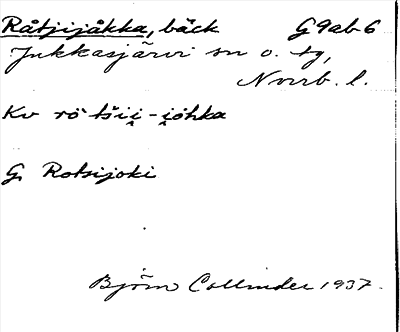 Råtjijåkka, bäck G9ab6
Jukkasjärvi sn o. tg,
Norrb. l.
Kv rö·tši̯i̯-i̯öhka
G. Rotsijoki
Björn Collinder 1937.